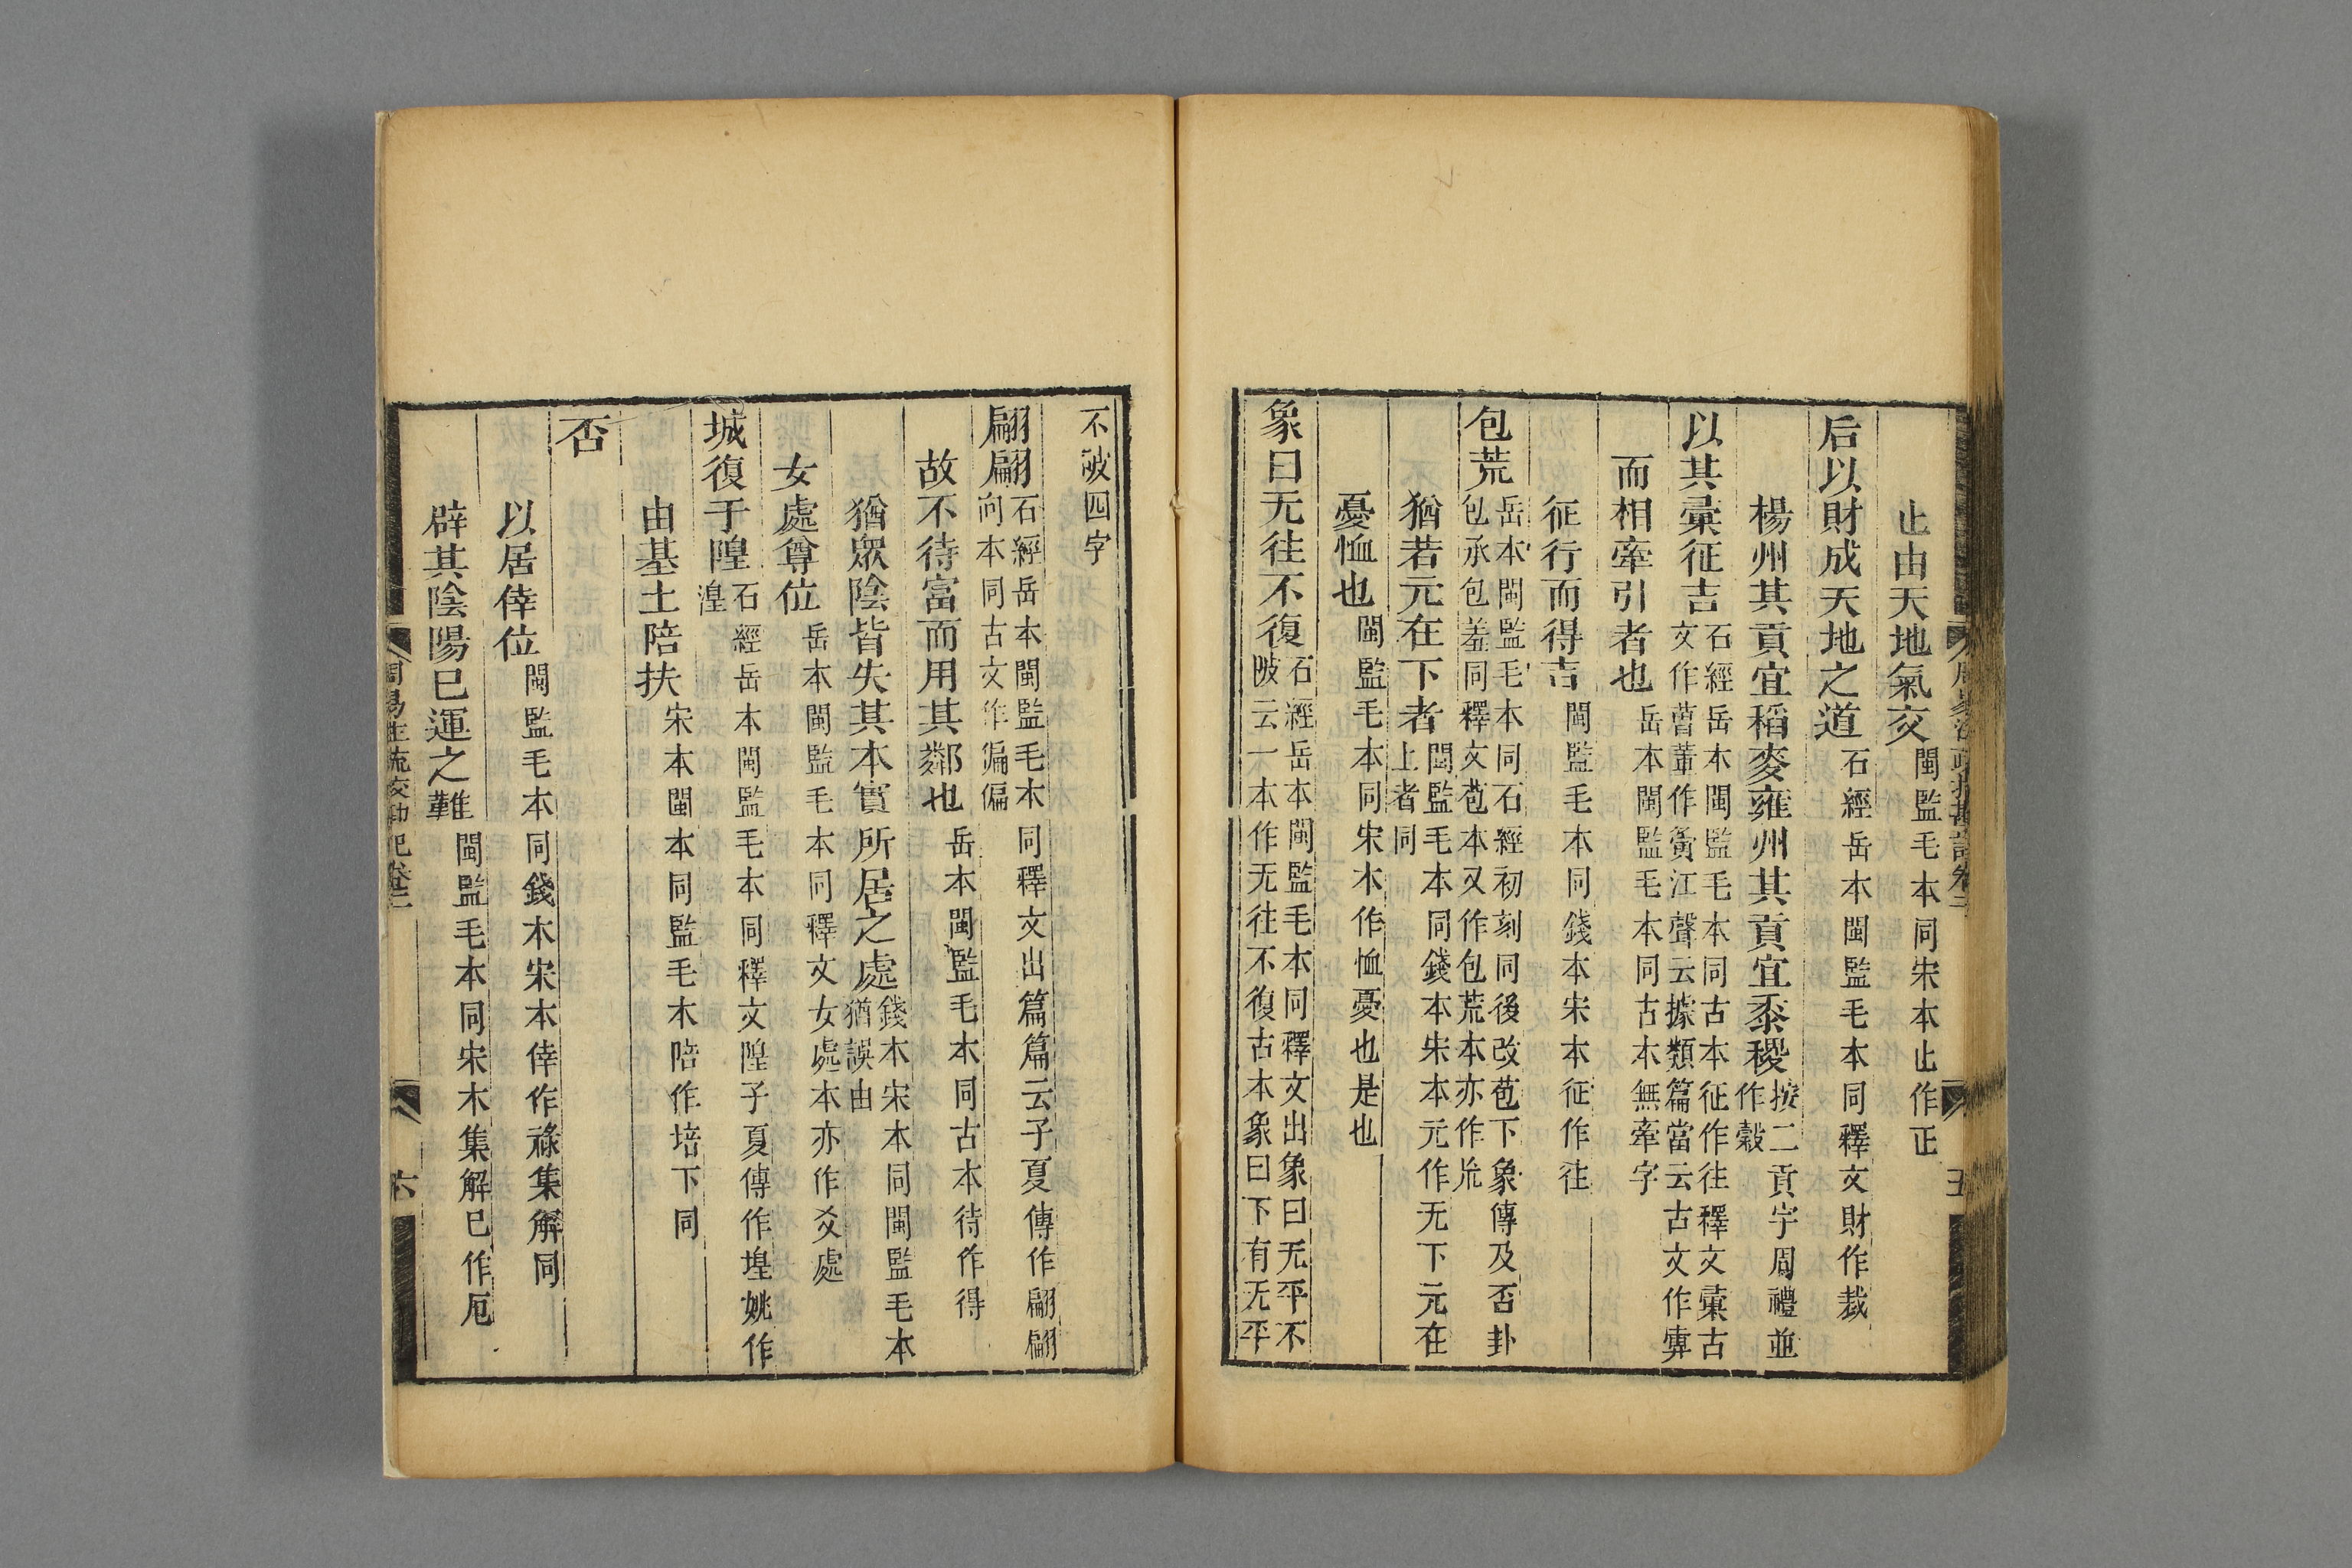 止由天地氣交閩監毛本同宋本止作正
后以財成天地之道石經岳本閩監毛本同釋文財作裁
楊州其貢宜稻麥雍州其貢宜黍稷按二貢字周禮並作穀
以其彙征吉石經岳本閩監毛本同古本征作往釋文彙古文作曹董作夤江聲云據類篇當云古文作𢑥
而相牽引者也岳本閩監毛本同古本無牽字
征行而得吉閩監毛本同錢本宋本征作往
包荒岳本閩監毛本同石經初刻同後改苞下象傳及否卦包承包羞同釋文苞本又作包荒本亦作巟
猶若元在下者閩監毛本同錢本宋本元作无下元在上者同
憂恤也閩監毛本同宋本作恤憂也是也
象曰无往不復石經岳本閩監毛本同釋文出象曰无平不陂云一本作无往不復古本象曰下有无平
不陂四字
翩翩石經岳本閩監毛本同釋文出篇篇云子夏傳作翩翩向本同古文作偏偏
故不待富而用其鄰也岳本閩監毛本同古本待作得
猶眾陰皆失其本實所居之處錢本宋本同閩監毛本猶誤由
女處尊位岳本閩監毛本同釋文女處本亦作爻處
城復于隍石經岳本閩監毛本同釋文隍子夏傳作堭姚作湟
由基土陪扶宋本閩本同監毛本陪作培下同
否
以居倖位閩監毛本同錢本宋本倖作祿集解同
辟其陰陽已運之難閩監毛本同宋本集解已作厄
周易注疏校勘記卷二
六